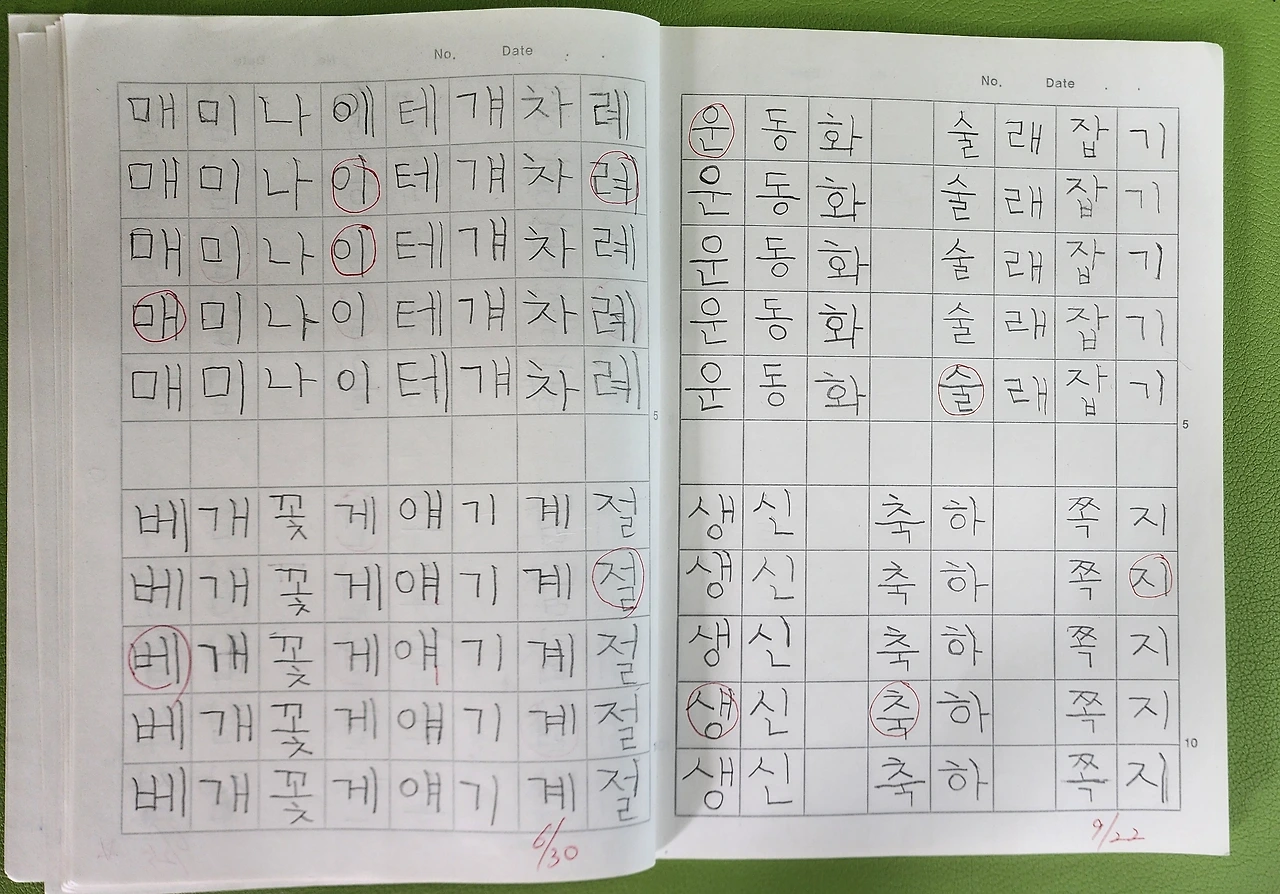 No. Date . .
매미나에테걔차례
매미나이테걔차례
매미나이테걔차례
매미나이테걔차례
매미나이테걔차례
5
베개꽃게얘기계절
베개꽃게얘기계절
베개꽃게얘기계절
베개꽃게얘기계절
베개꽃게얘기계절
6/30
No. Date . .
운동화 술래잡기
운동화 술래잡기
운동화 술래잡기
운동화 술래잡기
운동화 술래잡기
5
생신 축하 쪽지
생신 축하 쪽지
생신 축하 쪽지
생신 축하 쪽지
10
생신 축하 쪽지
9/22